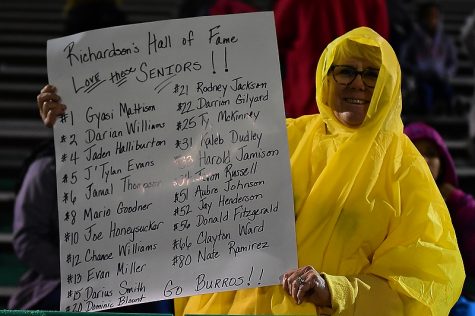 Richardson's Hall of Fame
Love these Seniors!!
#1 Gyasi Mattison
#2 Darian Williams
#4 Jaden Halliburton
#5 J'Tylan Evans
#6 Jamal Thompson
#8 Mario Goodner
#10 Joe Honeysucker
#12 Chance Williams
#13 Evan Miller
#15 Darius Smith
#20 Dominic Blount
#21 Rodney Jackson
#22 Darrion Gilyard
#25 Ty McKinney
#31 Kaleb Dudley
#33 Harold Jamison
Russell
#51 Aubre Johnson
#52 Jay Henderson
#56 Donald Fitzgerald
#66 Clayton Ward
#80 Nate Ramirez
Go Burros!!